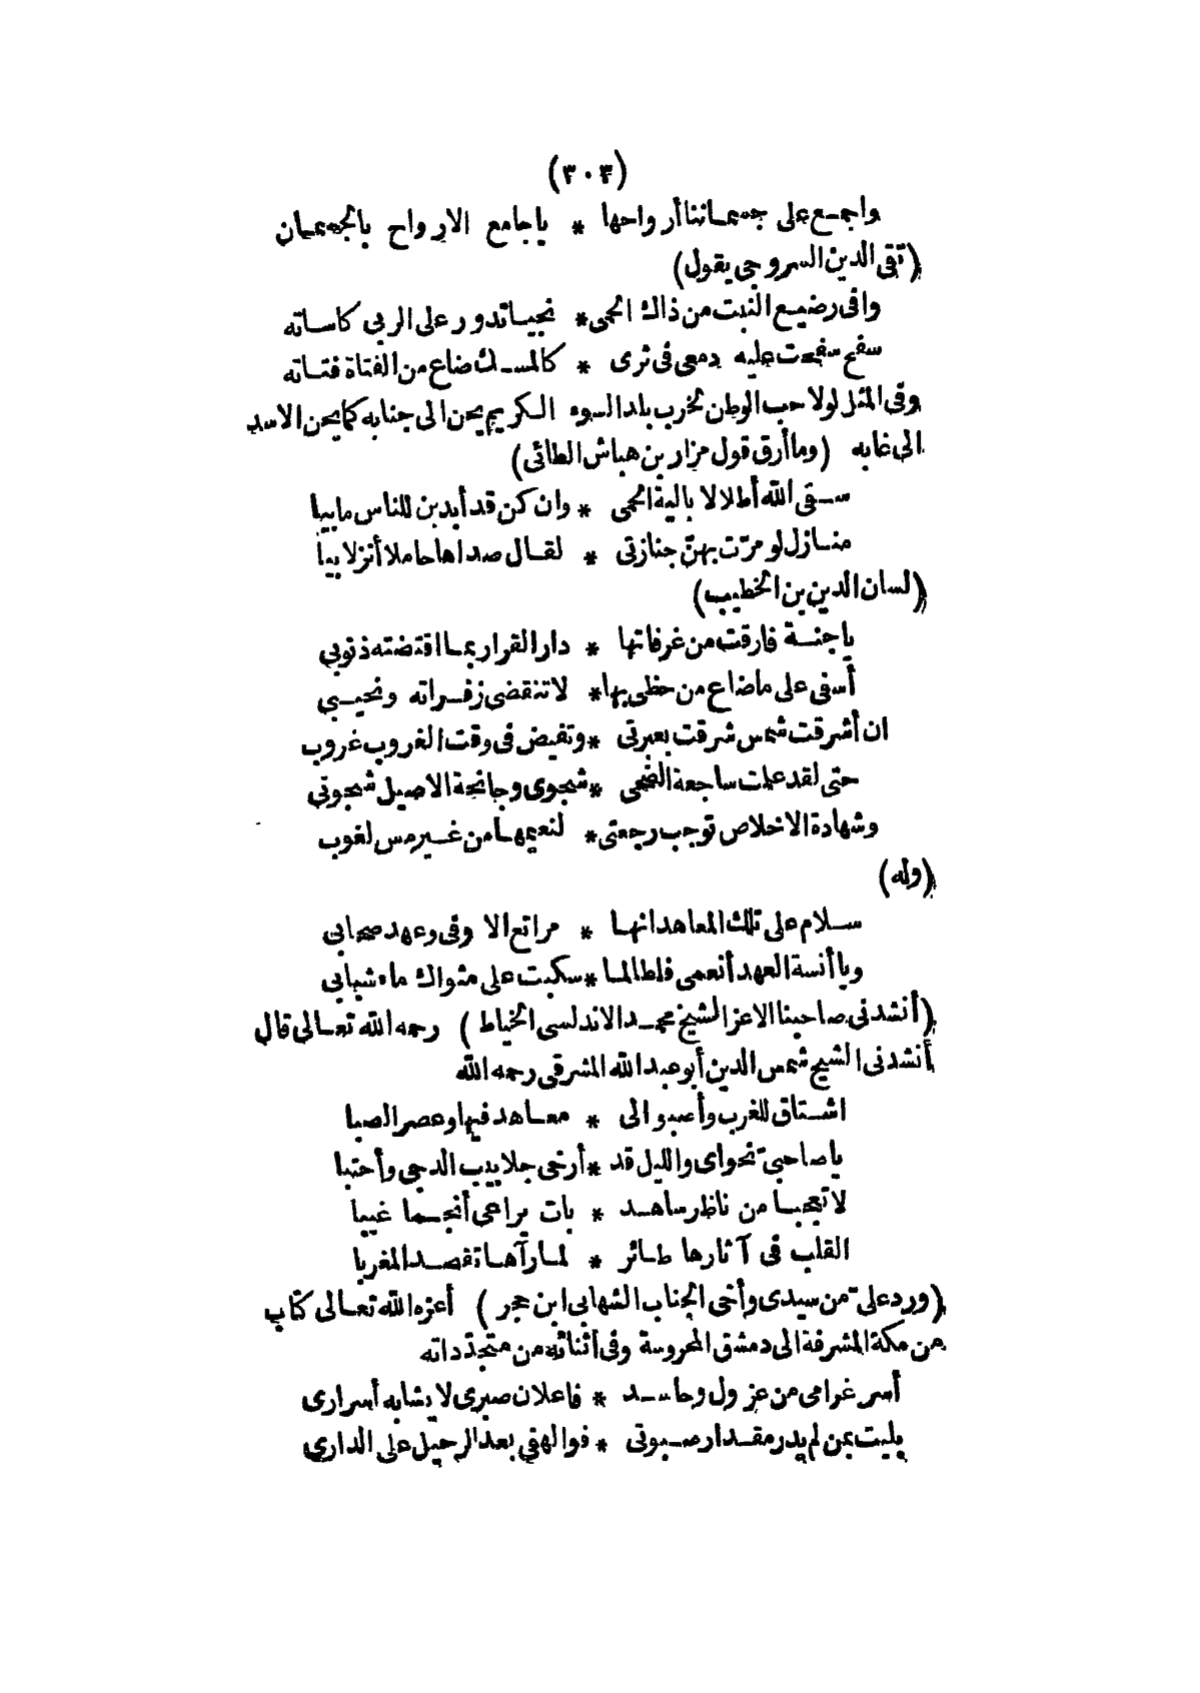 (٣٠٣)
واجمع على جسماننا أرواحها * ياجامع الارواح بالجسمان
(تقى الدين السروجى يقول)
وافى رضيع النبت من ذاك الحمى * نجيباتدور على الربى كاساته
سفح سفحت عليه دمعى فى ثرى * كالمسك ضاع من الفتاة فتاته
وفى المثل لولا حب الوطن لخرب بلد السوء الكريم يحن الى جنابه كما يحن الاسد
الى غابه (وما أرق قول مزار بن هباش الطائى)
سقى الله أطلالا بالية الحمى * وان كن قد أبدين للناس مابيا
منازل لو مرّت بهنّ جنازتى * لقال صداها حاملا أنزلا بيا
(لسان الدين بن الخطيب)
ياجنة فارقت من غرفاتها * دار القرار بما اقتضته ذنوبى
أسفى على ماضاع من حظى بها * لاتنقضى زفراته ونحيبى
ان أشرقت شمس شرقت بعبرتى * وتفيض فى وقت الغروب غروب
حتى لقد علمت ساجعة الضحى * شجوى وجانحة الاصيل شجوتى
وشهادة الاخلاص توجب رجعتى * لنعيمها من غير مس لغوب
(وله)
سلام على تلك المعاهد انها * مراتع الا وفى وعهد صحابى
ويا أنسة العهد أنعمى فلطالما * سكبت على مثواك ماء شبابى
(أنشدنى صاحبنا الاعز الشيخ محمد الاندلسى الخياط) رحمه الله تعالى قال
أنشدنى الشيخ شمس الدين أبو عبد الله المشرقى رحمه الله
اشتاق للغرب وأصبو الى * معاهد فيها وعصر الصبا
ياصاحبىّ نحواى والليل قد * أرخى جلابيب الدجى وأحتبا
لاتعجبا من ناظر ساهد * بات يراعى أنجما غيبا
القلب فى آثارها طائر * لما رآها تقصد المغربا
(ورد علىّ من سيدى وأخى الجناب الشهابى ابن حجر) أعزه الله تعالى كتاب
من مكة المشرفة الى دمشق المحروسة وفى اثنائه من متجدّداته
أسر غرامى من عزول وحاسد * فاعلان صبرى لا يشابه أسرارى
بليت بمن لم يدر مقدار صبوتى * فوالهفى بعد الرحيل على الدارى